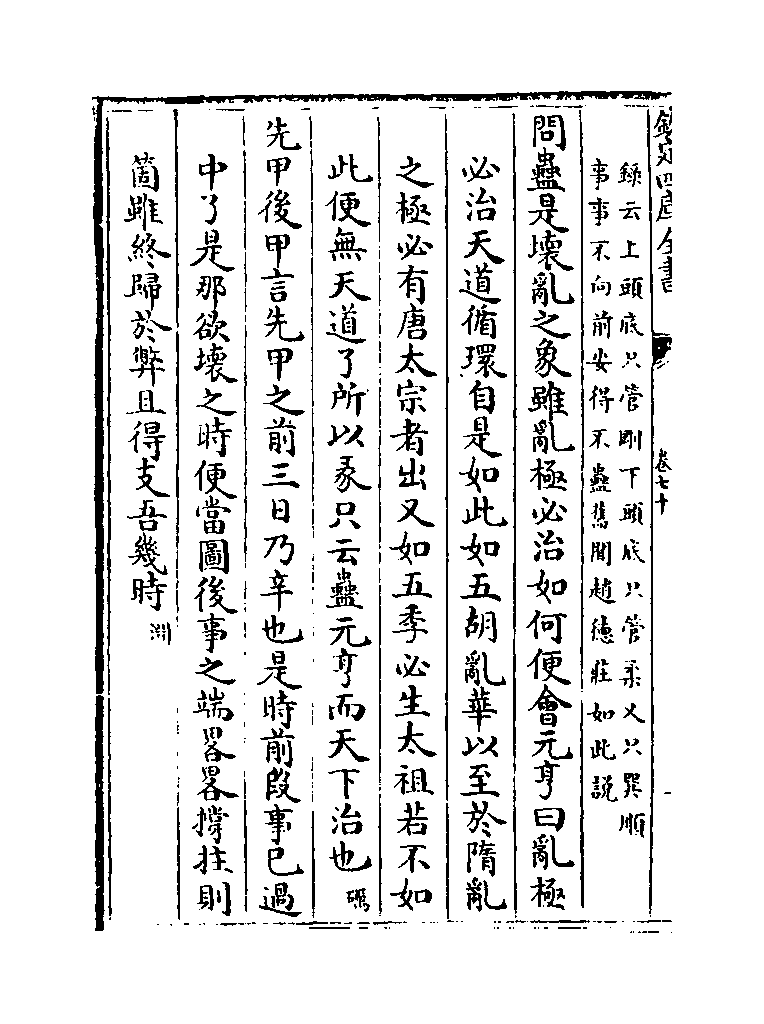 欽定四庫全書
卷七十
錄云上頭底只管剛下頭底只管柔又只巽順
事事不向前安得不蠱舊聞趙德莊如此說
問蠱是壞亂之象雖亂極必治如何便會元亨曰亂極
必治天道循環自是如此如五胡亂華以至於隋亂
之極必有唐太宗者出又如五季必生太祖若不如
此便無天道了所以彖只云蠱元亨而天下治也 礪
先甲後甲言先甲之前三日乃辛也是時前段事已過
中了是那欲壞之時便當圖後事之端畧畧撐拄則
箇雖終歸於弊且得支吾幾時 淵